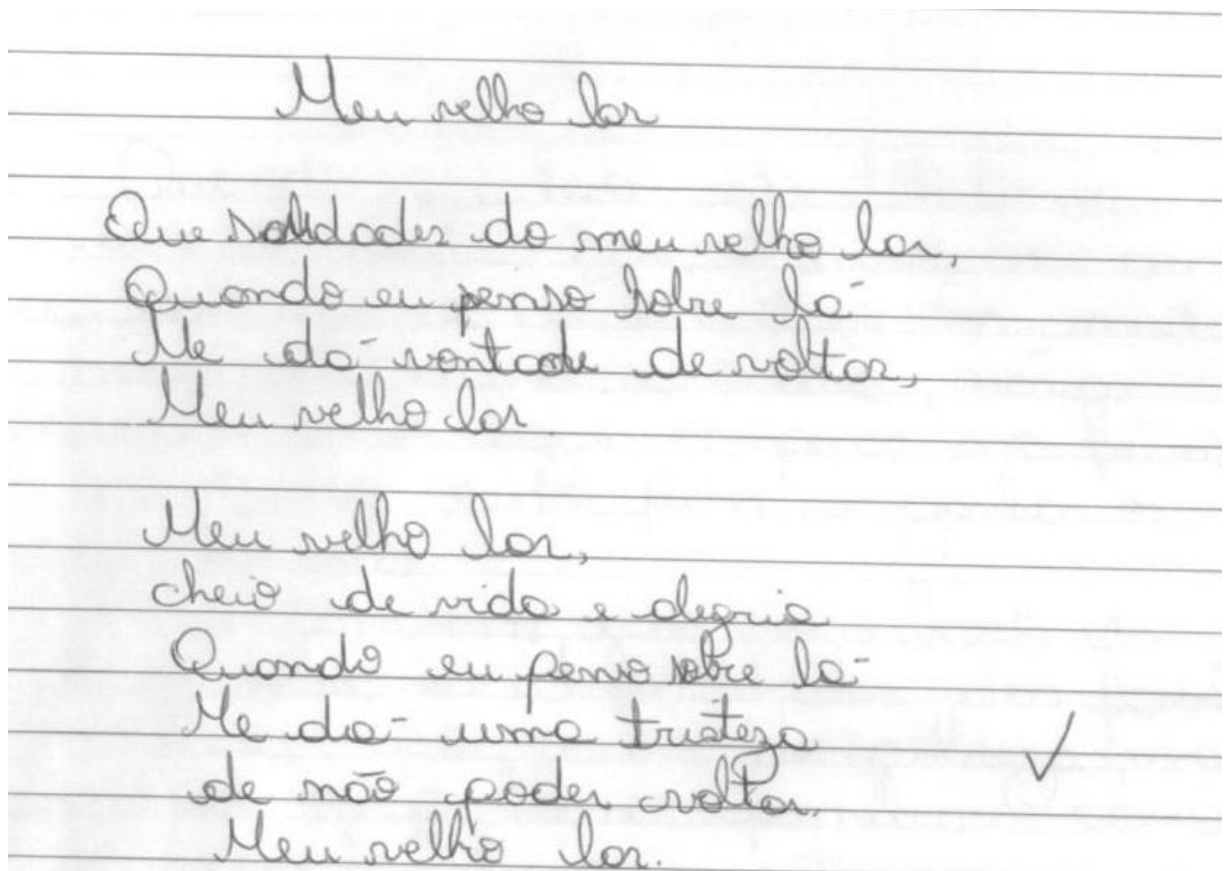 Meu velho lar
Que saldades do meu velho lar,
Quando eu penso sobre lá
Me dá vontade de voltar,
Meu velho lar.
Meu velho lar,
cheio de vida e alegria
Quando eu penso sobre lá
Me dá uma tristeza
de não poder voltar.
Meu velho lar.